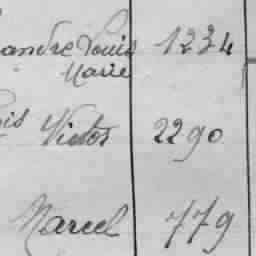 andre Louis 1234
Marie
ois Victor 2290
Marcel 779